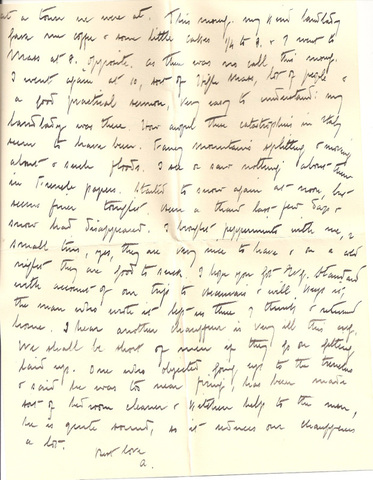 at a town we were at. This morng. my kind landlady
gave me coffee & some little cakes 1/4 to 8. & I went to
Mass at 8. opposite. as there was no call, this morng.
I went again at 10, sort of Mass, lot of people &
a good practical sermon, very easy to understand: my
landlady was there. How awful these catastrophes in Italy
seem to have been. Fancy mountains splitting & moving
about & such floods. I see or saw nothing about them
in French papers. Started to snow again at noon, but
seems finer tonight. been a thaw last few days &
snow had disappeared. I brought peppermints with me, a
small tin, yes, they are very nice to have & on a cold
night they are good to suck. I hope you got Standard
with account of our trip to & will keep it,
the man who wrote it left us there I think & returned
home. I hear another chauffeur is very ill this evg.
We shall be short of men if they go on getting
laid up. One who objected going up to the trenches
& said he was too near firing, has been made
sort of bedroom cleaner & kitchen help to the men,
he is quite sound, so it our chauffeurs
a lot.
Best love
a.